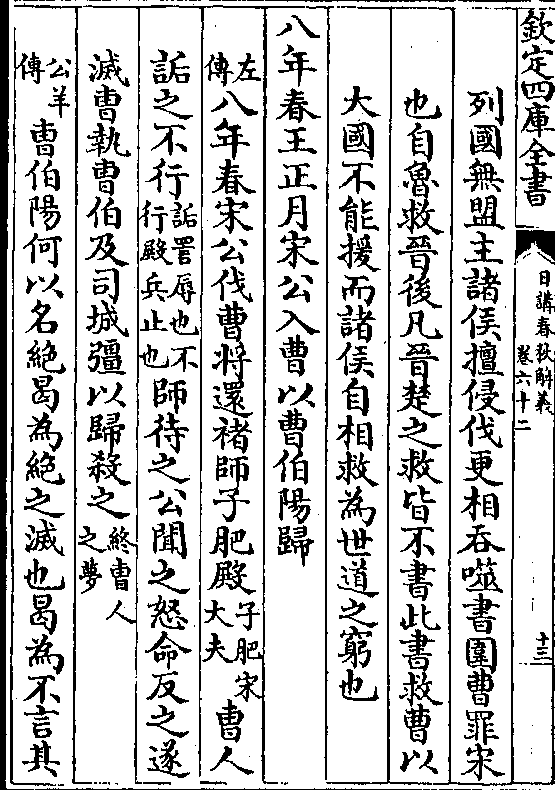 欽定四庫全書
日講春秋解義
卷六十二
十三
列國無盟主諸侯擅侵伐更相吞噬書圍曹罪宋
也自魯救晉後凡晉楚之救皆不書此書救曹以
大國不能援而諸侯自相救為世道之窮也
八年春王正月宋公入曹以曹伯陽歸
左傳八年春宋公伐曹將還褚師子肥殿子肥宋大夫曹人
詬之不行詬詈辱也不行殿兵止也師待之公聞之怒命反之遂
滅曹執曹伯及司城彊以歸殺之終曹人之夢
公羊傳曹伯陽何以名絕曷為絕之滅也曷為不言其